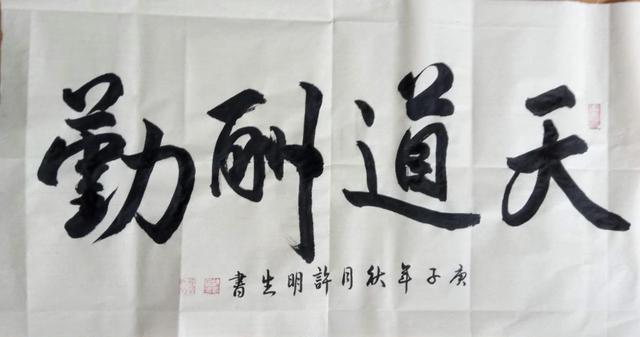 天道酬勤
庚子年秋月許明生書